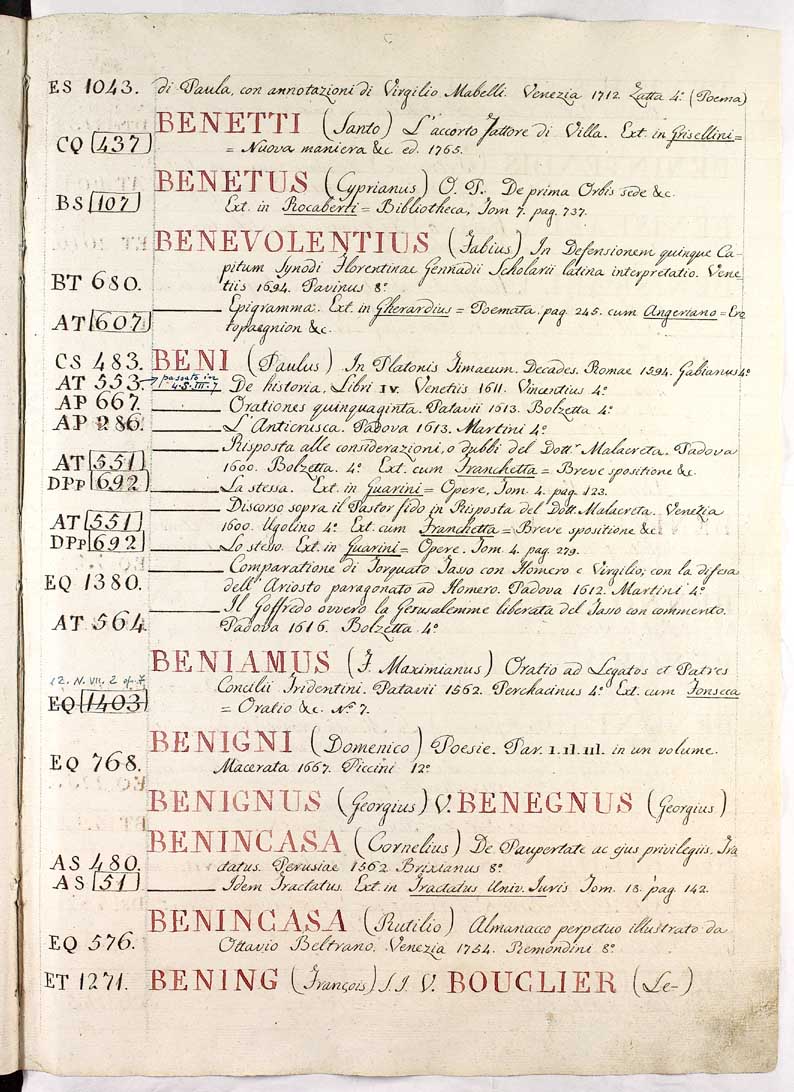 ES 1043. di Paula, con annotazioni di Virgilio Mabelli. Venezia 1712. Zatta 4º (Poema)
BENETTI (Santo) L'accorto Fattore di Villa. Ext. in Griselini=
CQ 437 = Nuova maniera &c. ed. 1765.
BENETUS (Cyprianus) O. P. De prima Orbis sede &c.
BS 107 Ext. in Rocaberti = Bibliotheca, Tom 7. pag. 737.
BENEVOLENTIUS (Fabius) In Defensionem quinque Ca-
pitum Synodi Florentinae Gennadii Scholarii latina interpretatio. Vene-
BT 680. tiis 1694. Pavinus 8º
Epigramma. Ext. in Gherardius = Poemata. pag. 245. cum Angeriano = Ero
AT 607 topaegnion &c.
CS 483. BENI (Paulus) In Platonis Timaeum. Decades. Romae 1594. Gabianus 4º
AT 553. → passato in 4.5.III.7 De historia, Libri IV. Venetiis 1611. Vincentius 4º
AP 667. Orationes quinquaginta. Patavii 1613. Bolzetta 4º
AP 286. L'Anticrusca. Padova 1613. Martini 4º
Risposta alle considerazioni, o dubbi del Dott.r Malacreta. Padova
AT 551 1600. Bolzetta. 4º Ext. cum Franchetta = Breve spositione &c.
DPp 692 La stessa. Ext. in Guarini = Opere, Tom. 4. pag. 123.
Discorso sopra il Pastor fido in Risposta del Dott. Malacreta. Venezia
AT 551 1600. Ugolino 4º Ext. cum Franchetta = Breve spositione &c.
DPp 692 Lo stesso. Ext. in Guarini = Opere. Tom. 4. pag. 279.
Comparatione di Torquato Tasso con Homero e Virgilio; con la difesa
EQ 1380. dell'Ariosto paragonato ad Homero. Padova 1612. Martini 4º
Il Goffredo ovvero la Gerusalemme liberata del Tasso con commento.
AT 564. Padova 1616. Bolzetta 4º
BENIAMUS (J. Maximianus) Oratio ad Legatos et Patres
12. N. VII. 2 op. 7 Concilii Tridentini. Patavii 1562. Perchacinus 4º Ext. cum Fonseca
EQ 1403 = Oratio &c. Nº 7.
BENIGNI (Domenico) Poesie. Par. I. II. III. in un volume.
EQ 768. Macerata 1667. Piccini 12º
BENIGNUS (Georgius) V. BENEGNUS (Georgius)
BENINCASA (Cornelius) De Paupertate ac ejus privilegiis. Tra
AS 480. ctatus. Perusiae 1562 Brixianus 8º
AS 51 Idem Tractatus. Ext. in Tractatus Univ. Iuris Tom. 18. pag. 142.
BENINCASA (Rutilio) Almanacco perpetuo illustrato da
EQ 576. Ottavio Beltrano. Venezia 1754. Remondini 8º
ET 1271. BENING (François) S. J. V. BOUCLIER (Le-)